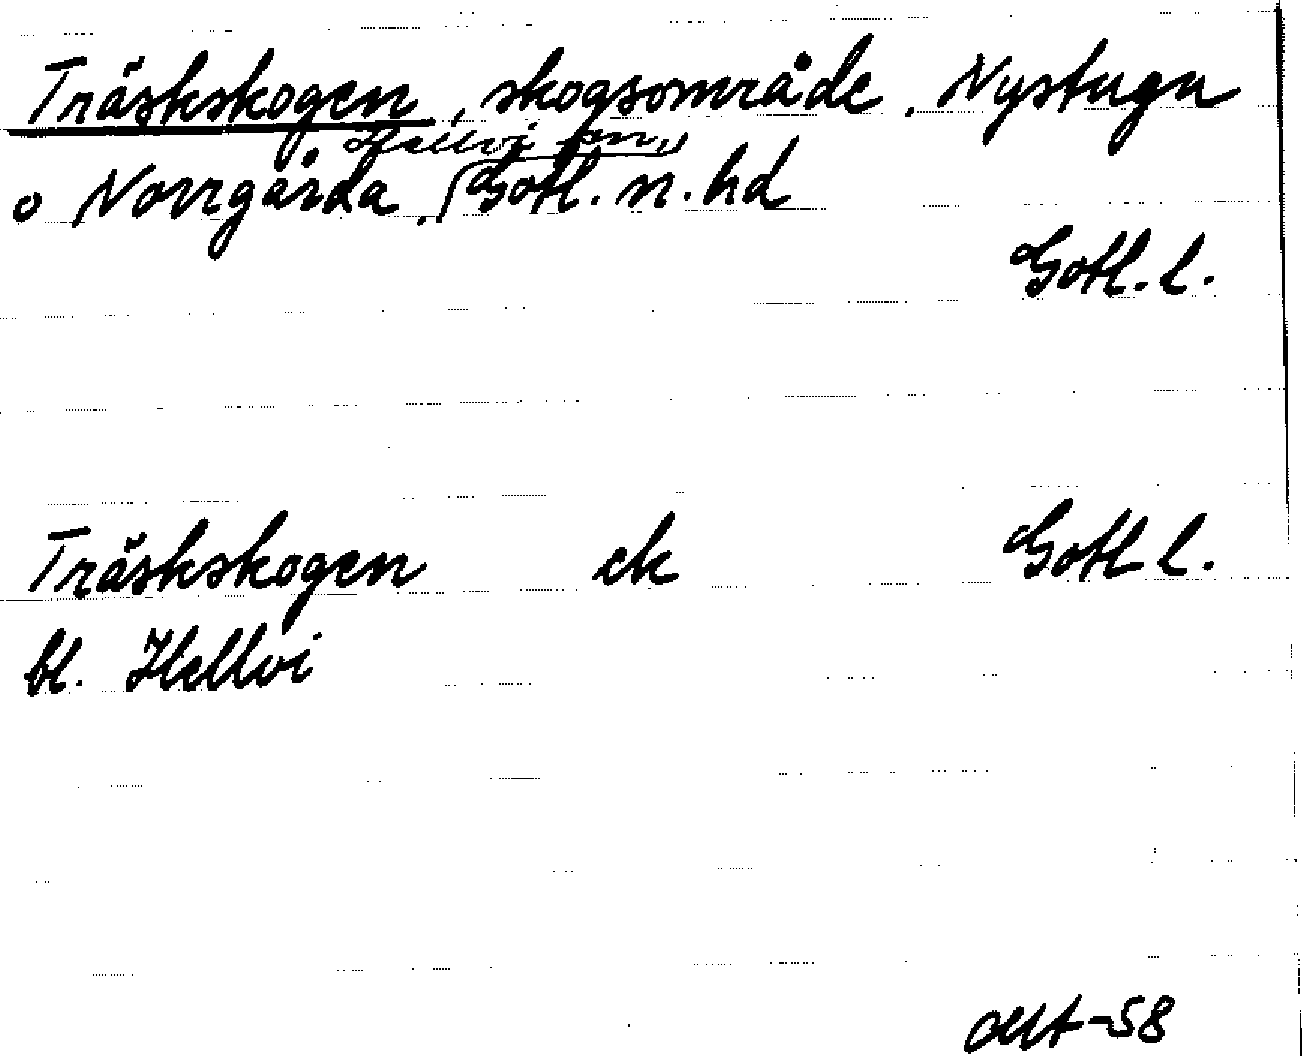 Träskskogen, skogsområde, Nystugu
Hellvi sn,
o Norrgårda, Gotl. n. hd
Gotl. l.
Träskskogen ek Gotl l.
bl. Hellvi
-58